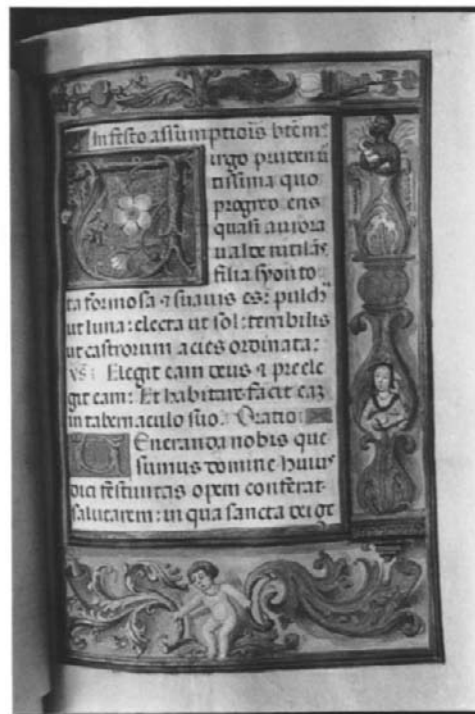 In festo assumptiois bte m
Virgo pruden
tissima quo
progredieris
quasi aurora
ualde rutilās
filia syon to
ta formosa ⁊ suauis es: pulchr
ut luna: electa ut sol: terribilis
ut castrorum acies ordinata:
vs: Elegit eam deus ⁊ preele
git eam: Et habitare facit eaʒ
in tabernaculo suo. Oratio:
Ueneranda nobis que
sumus domine huius
diei festiuitas opem conferat
salutarem: in qua sancta dei gē